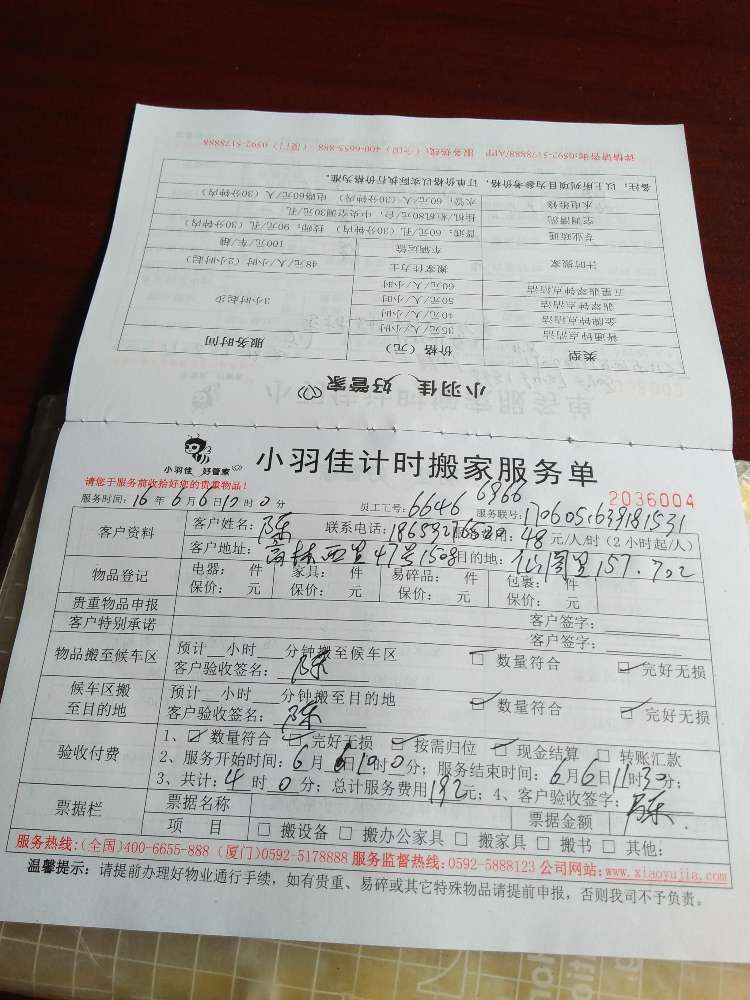 详情请咨询:0592-5178888/APP 服务热线:(全国)400-6655-888 (厦门)0592-5178888
备注:以上所列项目为参考价格,订单价格以实际执行价格为准。
水电维修 水管:60元/人(30分钟内) 电路60元/人(30分钟内)
空调清洗 挂机/柜机80元/台,中央空调30元/孔
专业疏通 普通:60元/孔(30分钟内) 技师:90元/孔(30分钟内)
计时搬家 车辆运输 100元/车/趟
搬家仕力士 48元/人/小时(2小时起)
五星翡翠钟点清洁 60元/人/小时
翡翠钟点清洁 50元/人/小时 3小时起步
金牌钟点清洁 40元/人/小时
普通钟点清洁 35元/人/小时
类型 价格(元) 服务时间
小羽佳 好管家
小羽佳 好管家
小羽佳计时搬家服务单
请您于服务前收拾好您的贵重物品!
2036004
服务时间:16年6月6日10时0分 员工工号:6646 6966 服务联号:
客户资料 客户姓名:陈 联系电话: 服务费用:48元/人/时(2小时起/人)
客户地址: 西里47号1508 目的地:仙阁里157.702
物品登记 电器: 件 家具: 件 易碎品: 件 包裹: 件
保价: 元 保价: 元 保价: 元 保价: 元
贵重物品申报 客户签字:
客户特别承诺 客户签字:
物品搬至候车区 预计__小时__分钟搬至候车区 □ 数量符合 ☑ 完好无损
客户验收签名:陈
候车区搬至目的地 预计__小时__分钟搬至目的地 ☑ 数量符合 ☑ 完好无损
客户验收签名:陈
验收付费 1、☑ 数量符合 ☑ 完好无损 ☑ 按需归位 ☑ 现金结算 □ 转账汇款
2、服务开始时间:6月6日10时0分;服务结束时间:6月6日11时30分;
3、共计:4时0分;总计服务费用192元;4、客户验收签字:陈
票据栏 票据名称 票据金额
项 目 □ 搬设备 □ 搬办公家具 □ 搬家具 □ 搬书 □ 其他:
服务热线:(全国)400-6655-888 (厦门)0592-5178888 服务监督热线:0592-5888123 公司网站:www.xiaoyujia.com
温馨提示:请提前办理好物业通行手续,如有贵重、易碎或其它特殊物品请提前申报,否则我司不予负责。